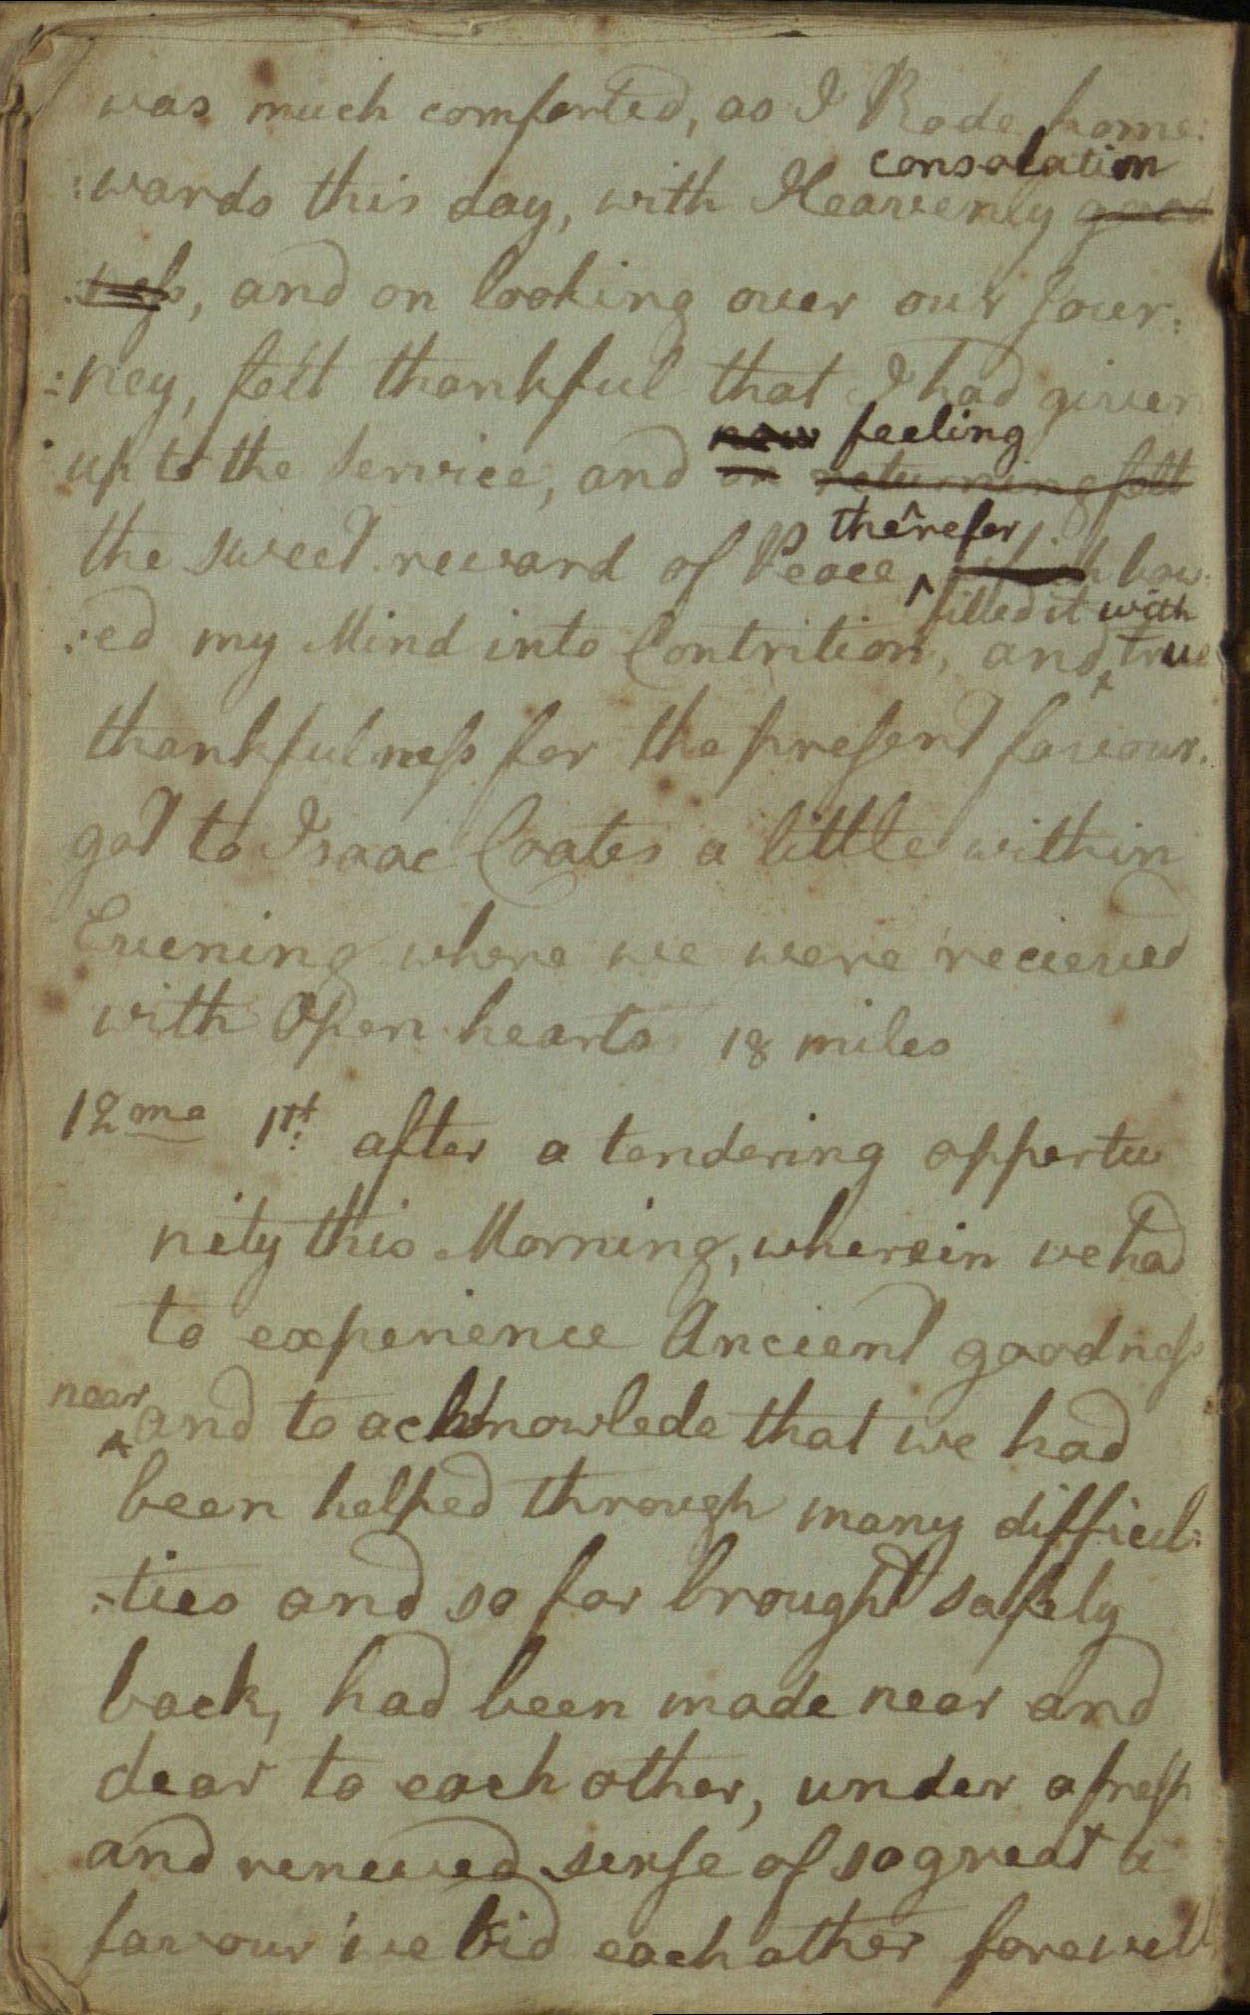 was much comforted, as I Rode home:
consolation
:wards this day, with Heavenly good
:ness, and on looking over our Jour:
:ney, felt thankful that I had given
now feeling
up to the service, and on returning felt
therefor
the sweet reward of Peace, which bow:
filled it with
:ed my Mind into Contrition, and true
thankfulness for the present favour.
got to Isaac Coates a little within
Evening where we were recieved
with Open hearts 18 miles
12mo 1st after a tendering opportu
nity this Morning, wherein we had
to experience Ancient goodness
near and to acknowlede that we had
been helped through many difficul:
:ties and so far brought safely
back, had been made near and
dear to each other, under a fresh
and renewed sense of so great a
favour we bid each other farewell